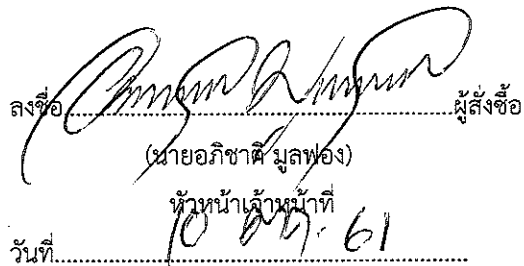 ลงชื่อ........................................................ผู้สั่งซื้อ
(นายอภิชาติ มูลฟอง)
หัวหน้าเจ้าหน้าที่
วันที่ 10 61